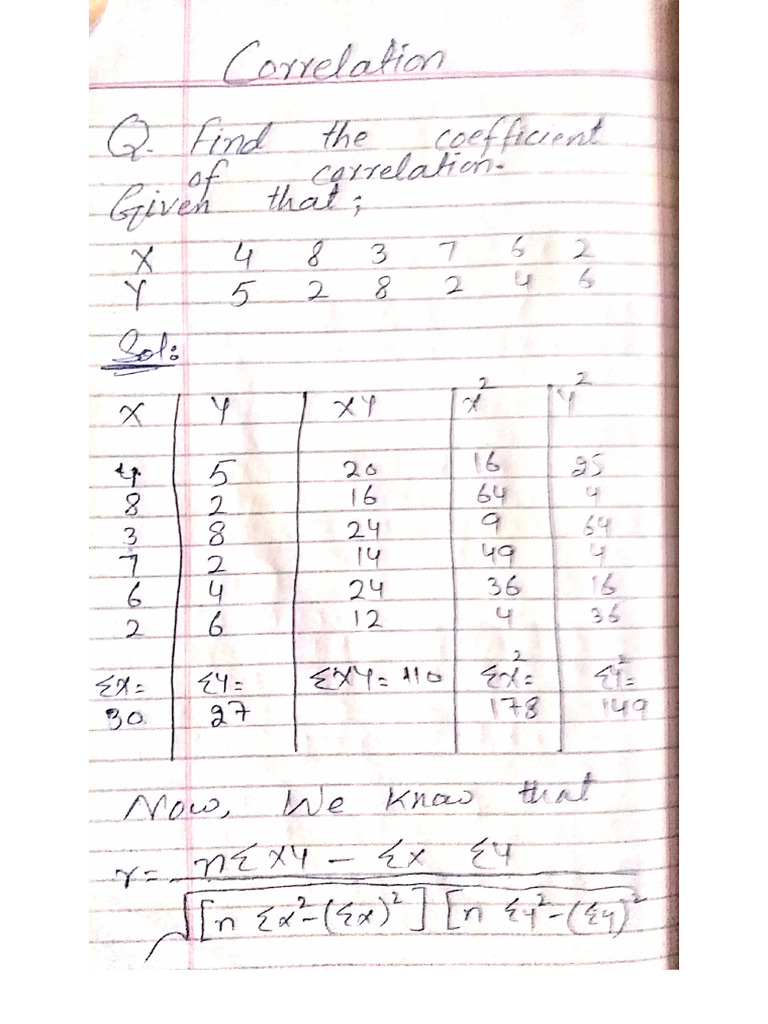 Correlation
Q. Find the coefficient
of correlation.
Given that;
X 4 8 3 7 6 2
Y 5 2 8 2 4 6
Sol:
X Y XY x² Y²
4 5 20 16 25
8 2 16 64 4
3 8 24 9 64
7 2 14 49 4
6 4 24 36 16
2 6 12 4 36
Σx= Σy= ΣXY=110 Σx²= Σy²=
30 27 178 149
Now, We know that
r= nΣXY - Σx Σy
√[n Σx²-(Σx)²] [n Σy²-(Σy)²